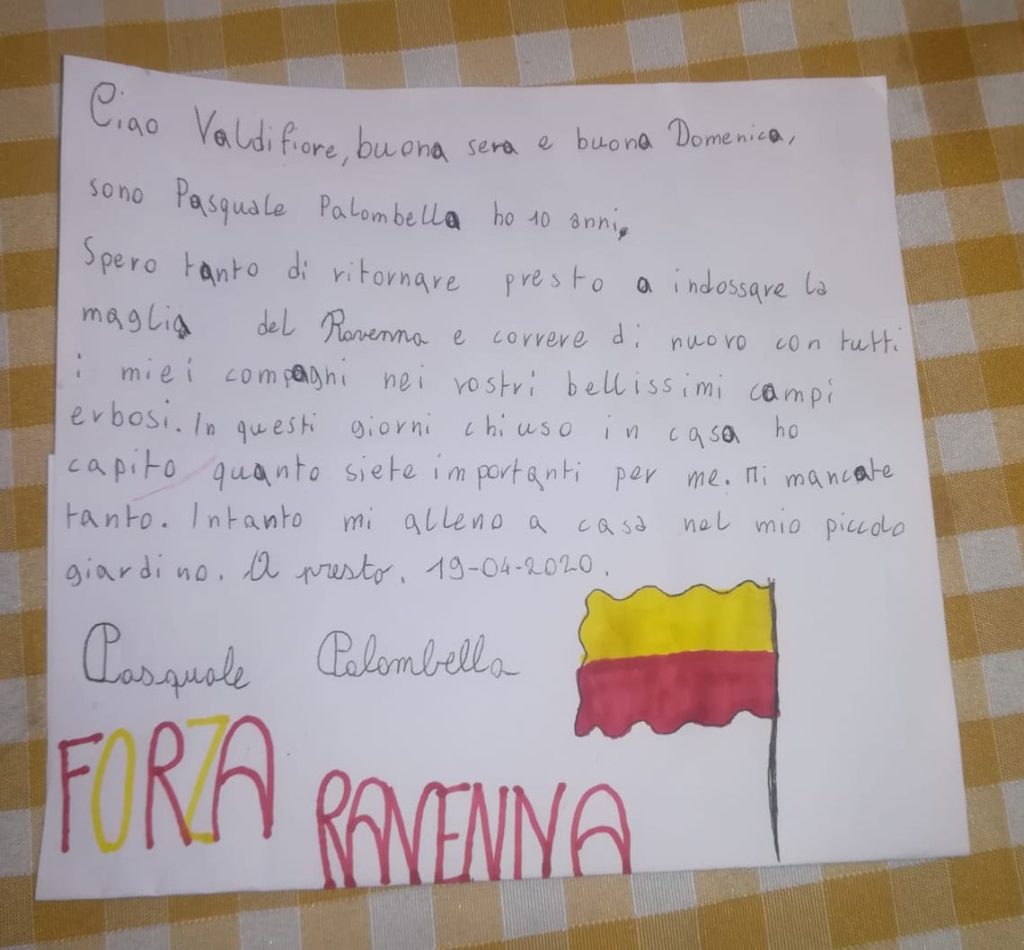 Ciao Valdifiore, buona sera e buona Domenica,
sono Pasquale Palombella ho 10 anni,
Spero tanto di ritornare presto a indossare la
maglia del Ravenna e correre di nuovo con tutti
i miei compaghi nei vostri bellissimi campi
erbosi. In questi giorni chiuso in casa ho
capito quanto siete importanti per me. Mi mancate
tanto. Intanto mi alleno a casa nel mio piccolo
giardino. A presto. 19-04-2020.
Pasquale Palombella
FORZA
RAVENNA